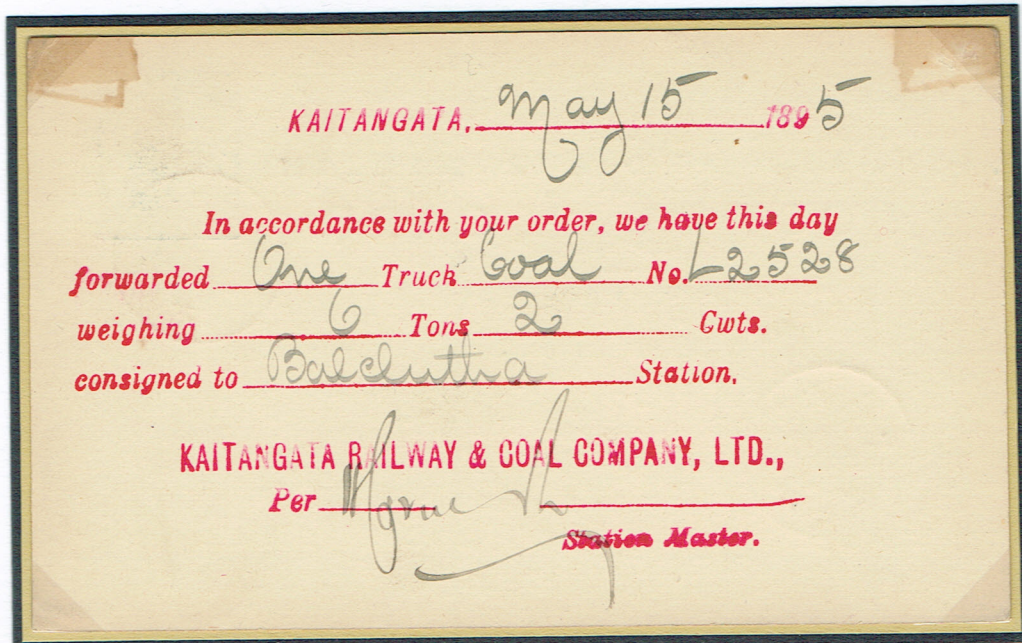 KAITANGATA, May 15 1895
In accordance with your order, we have this day
forwarded One Truck Coal No. L2528
weighing 6 Tons 2 Cwts.
consigned to Balclutha Station.
KAITANGATA RAILWAY & COAL COMPANY, LTD.,
Per
Station Master.